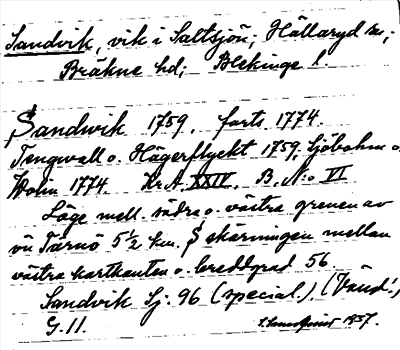 Sandvik, vik i Saltsjön; Hällaryd sn;
Bräkne hd; Blekinge l.
Sandwik 1759, forts. 1774.
Tengwall o. Hägerflycht 1759, Sjöbohm o.
Wolin 1774. Kr.A. XXIV. B. N:o VI
Läge mell. södra o. västra grenen av
vü Tärnö 5½ km. S skärningen mellan
västra kartkanten o. breddgrad 56.
Sandvik Sj. 96 (special.). (Vänd!)
G.11. 1957.